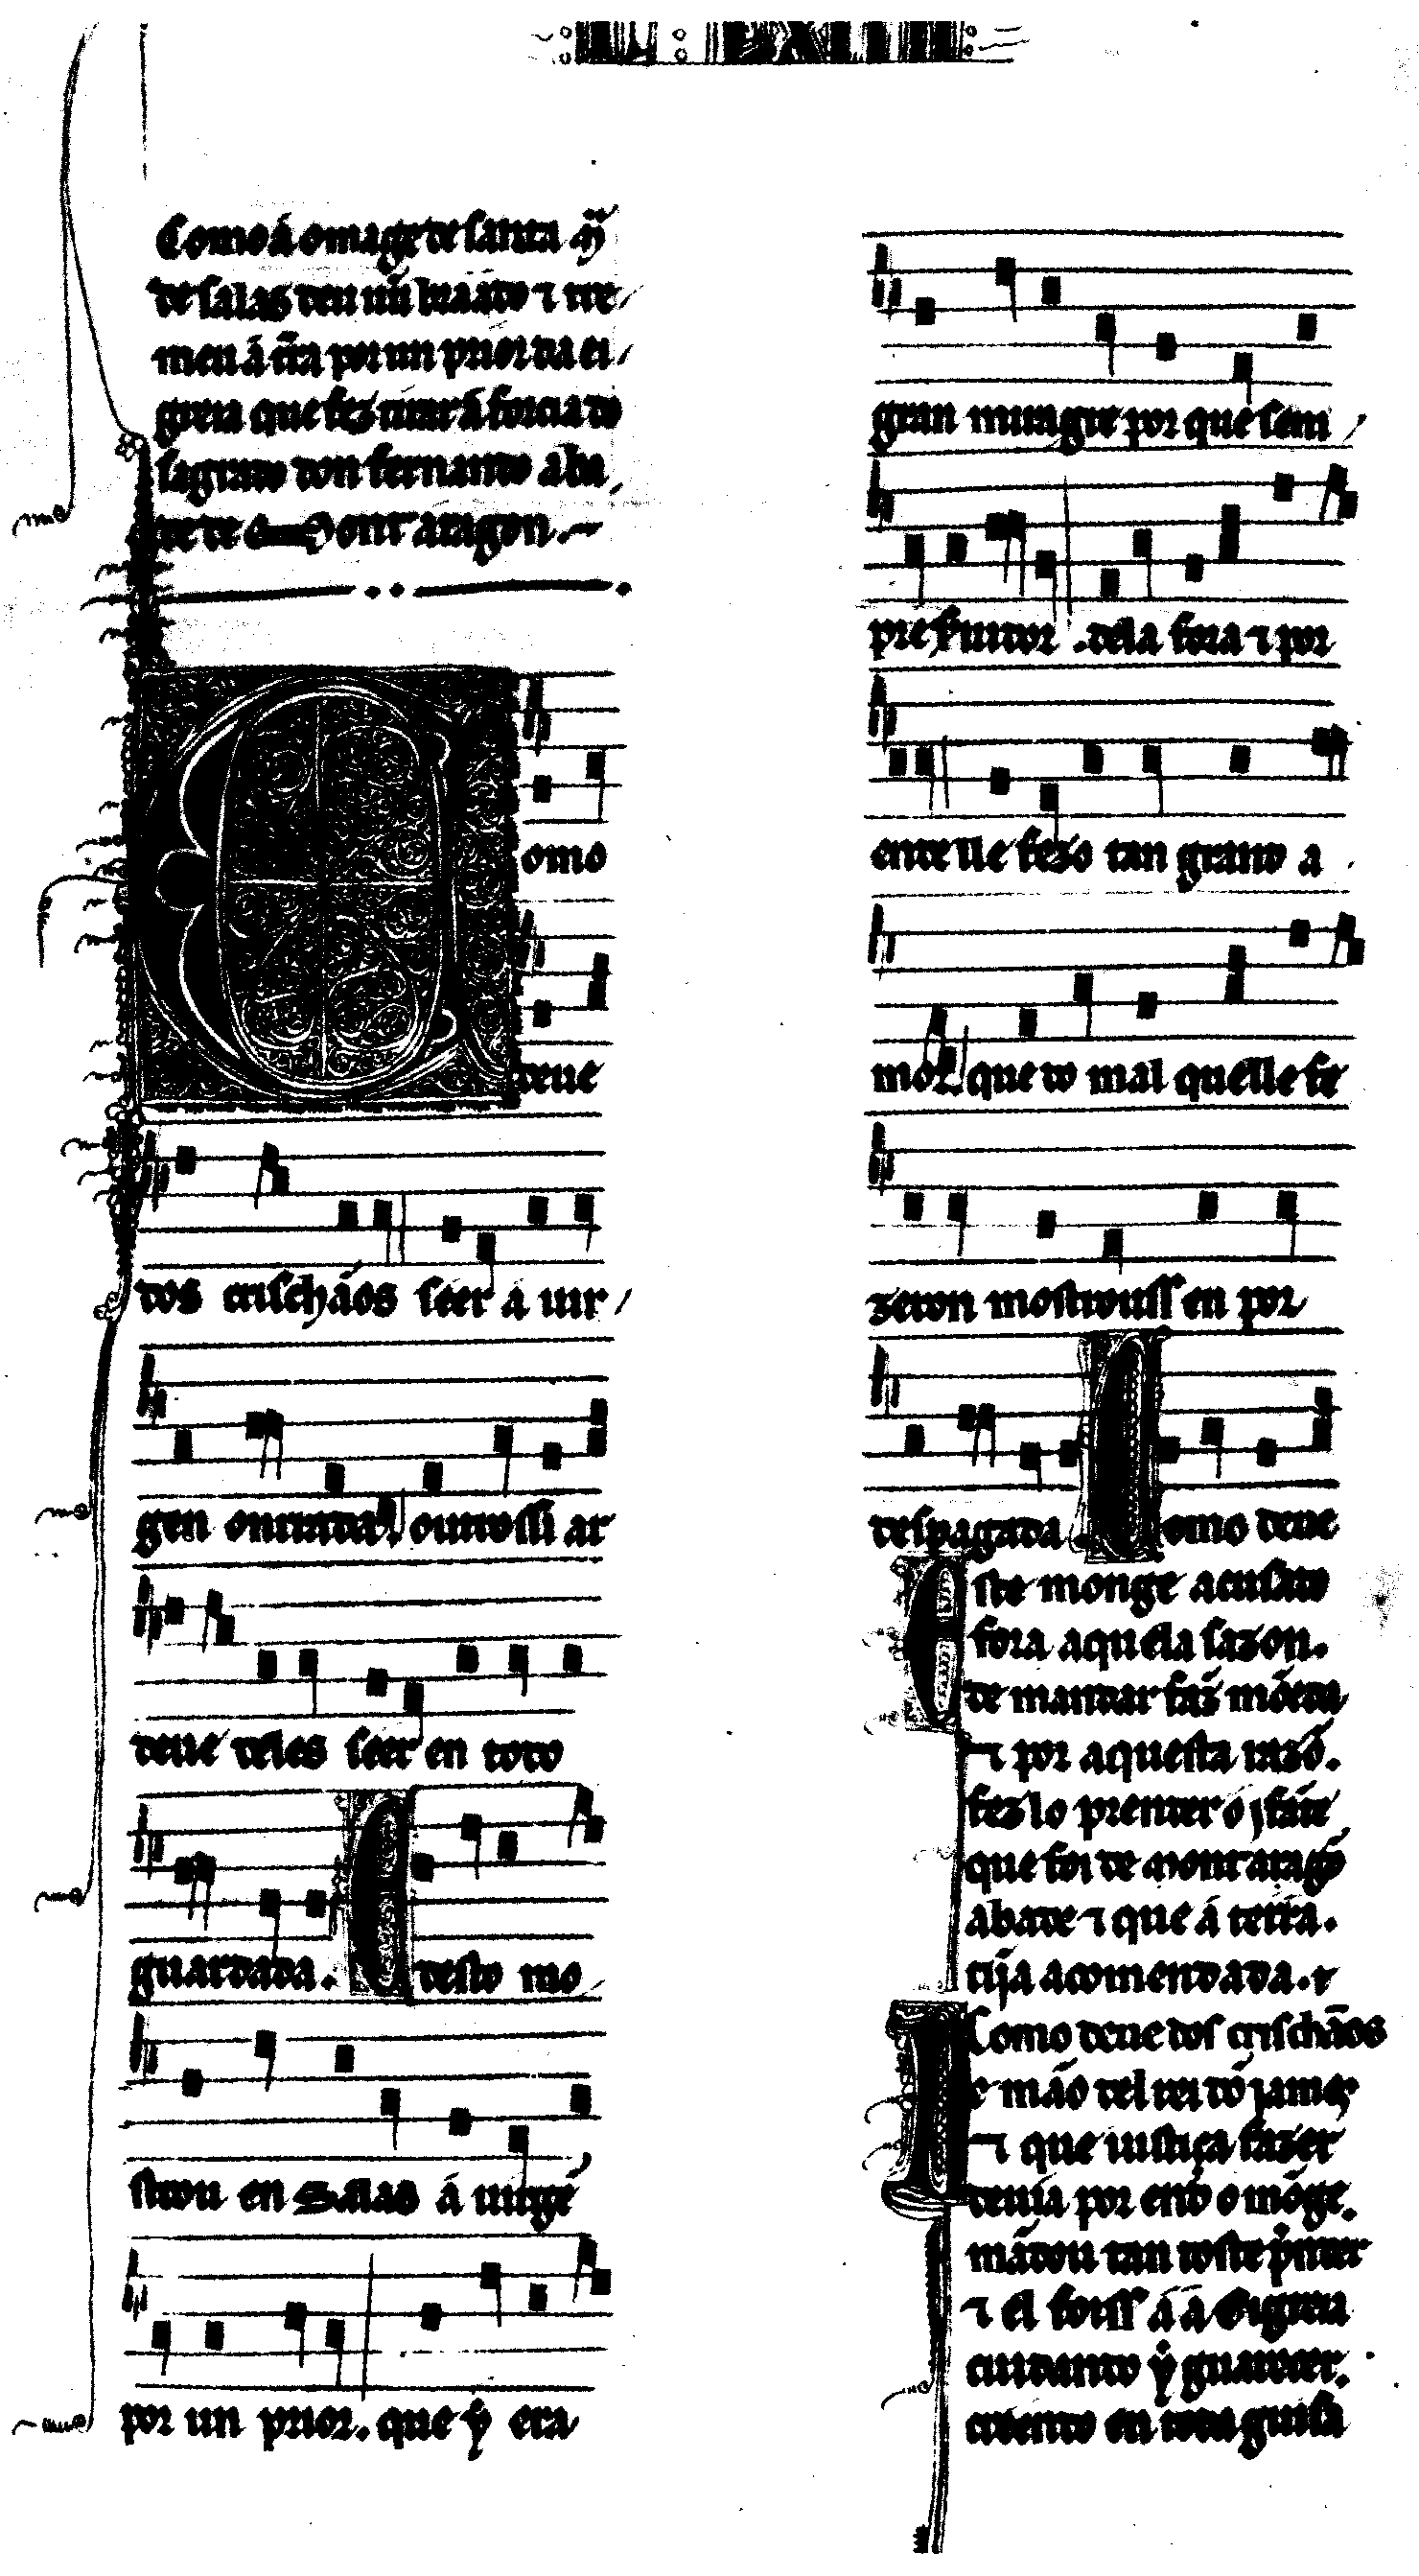 Como á omagẽ de santa mͣ
de salas deu un̄ braado ⁊ tre
meu á tr̄ra por un prior da ei
greia que fez tirar á força do
sagrado don fernando aba
te de Mont aragon.
omo
deue
dos crischãos seer a uir
gen onrrada. outrossi ar
deue deles seer en todo
guardada. E desto mo
strou en Salas á uirgẽ
por un prior. que ẏ era
gran miragre por que sem
pre seruidor .dela fora ⁊ por
ente lle fezo tan grand a
mor. que do mal que lle fe
zeron mostrousse en por
despagada. Como deue
Este monge acusado
fora aquela sazon.
de mandar faz̄ mõeda
⁊ por aquesta razõ.
fezlo prender o jfãte
que foi de Mont aragõ
abade ⁊ que á terra.
tĩja acomendada. ⁊
Como deue dos crischãos
E mão del rei dõ james
⁊ que iustiça fazer
deuja por endo o mõge.
mãdou tan toste p̃nder
⁊ el foisse á a Eigreia
cuidando ẏ guarecer.
creendo en toda guisa